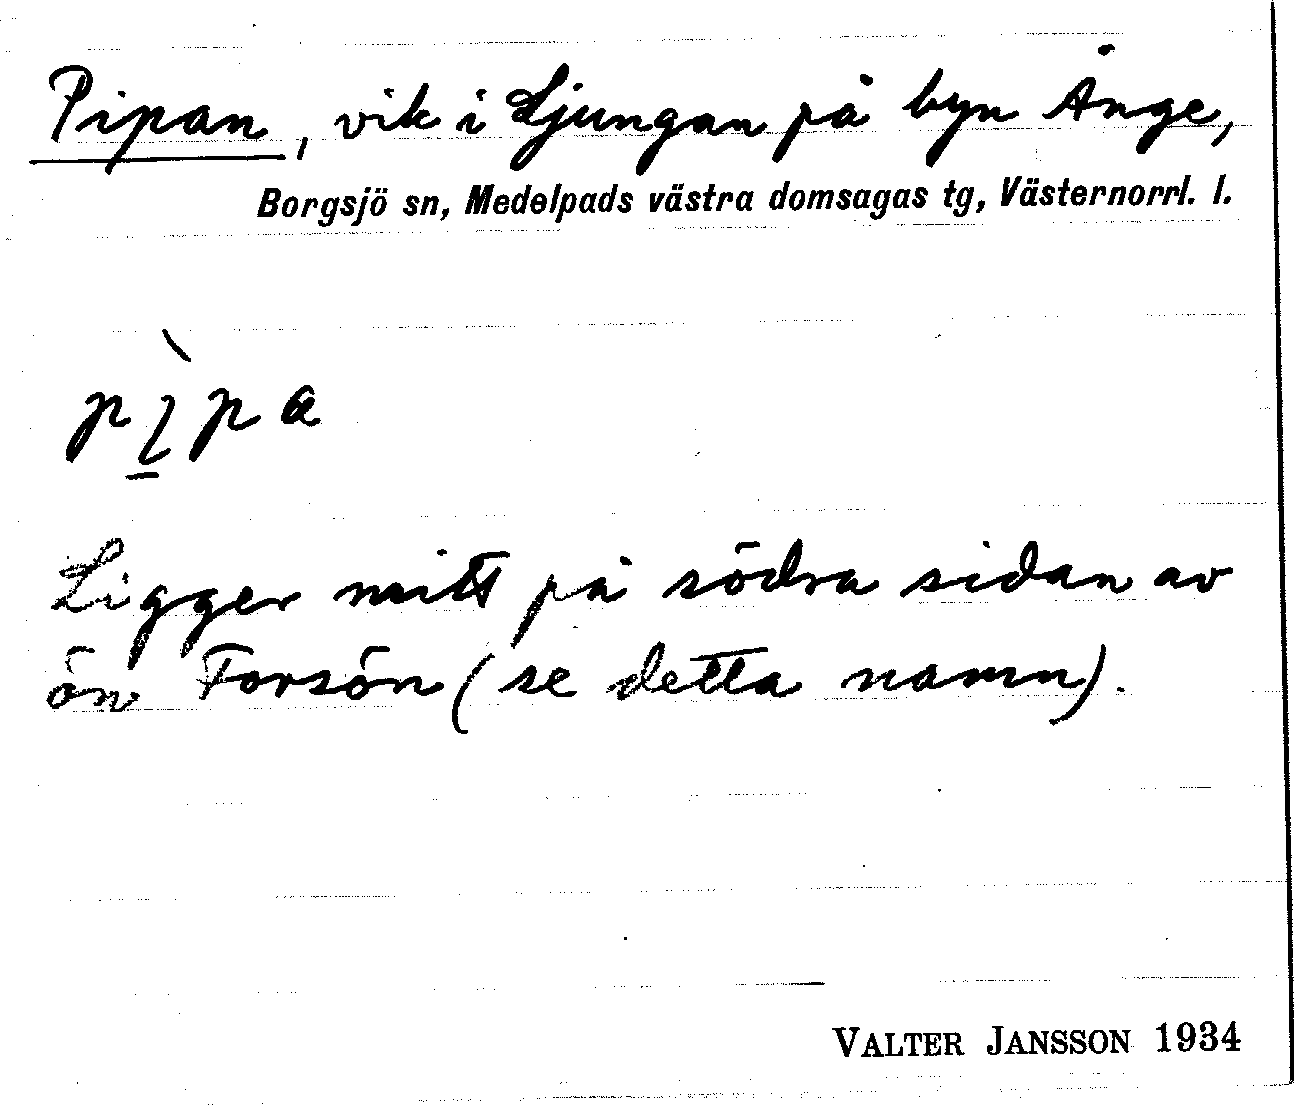 Pipan, vik i Ljungan på byn Ånge,
Borgsjö sn, Medelpads västra domsagas tg, Västernorrl. l.
pı̠̀pa
Ligger mitt på södra sidan av
ön Forsön (se detta namn).
VALTER JANSSON 1934